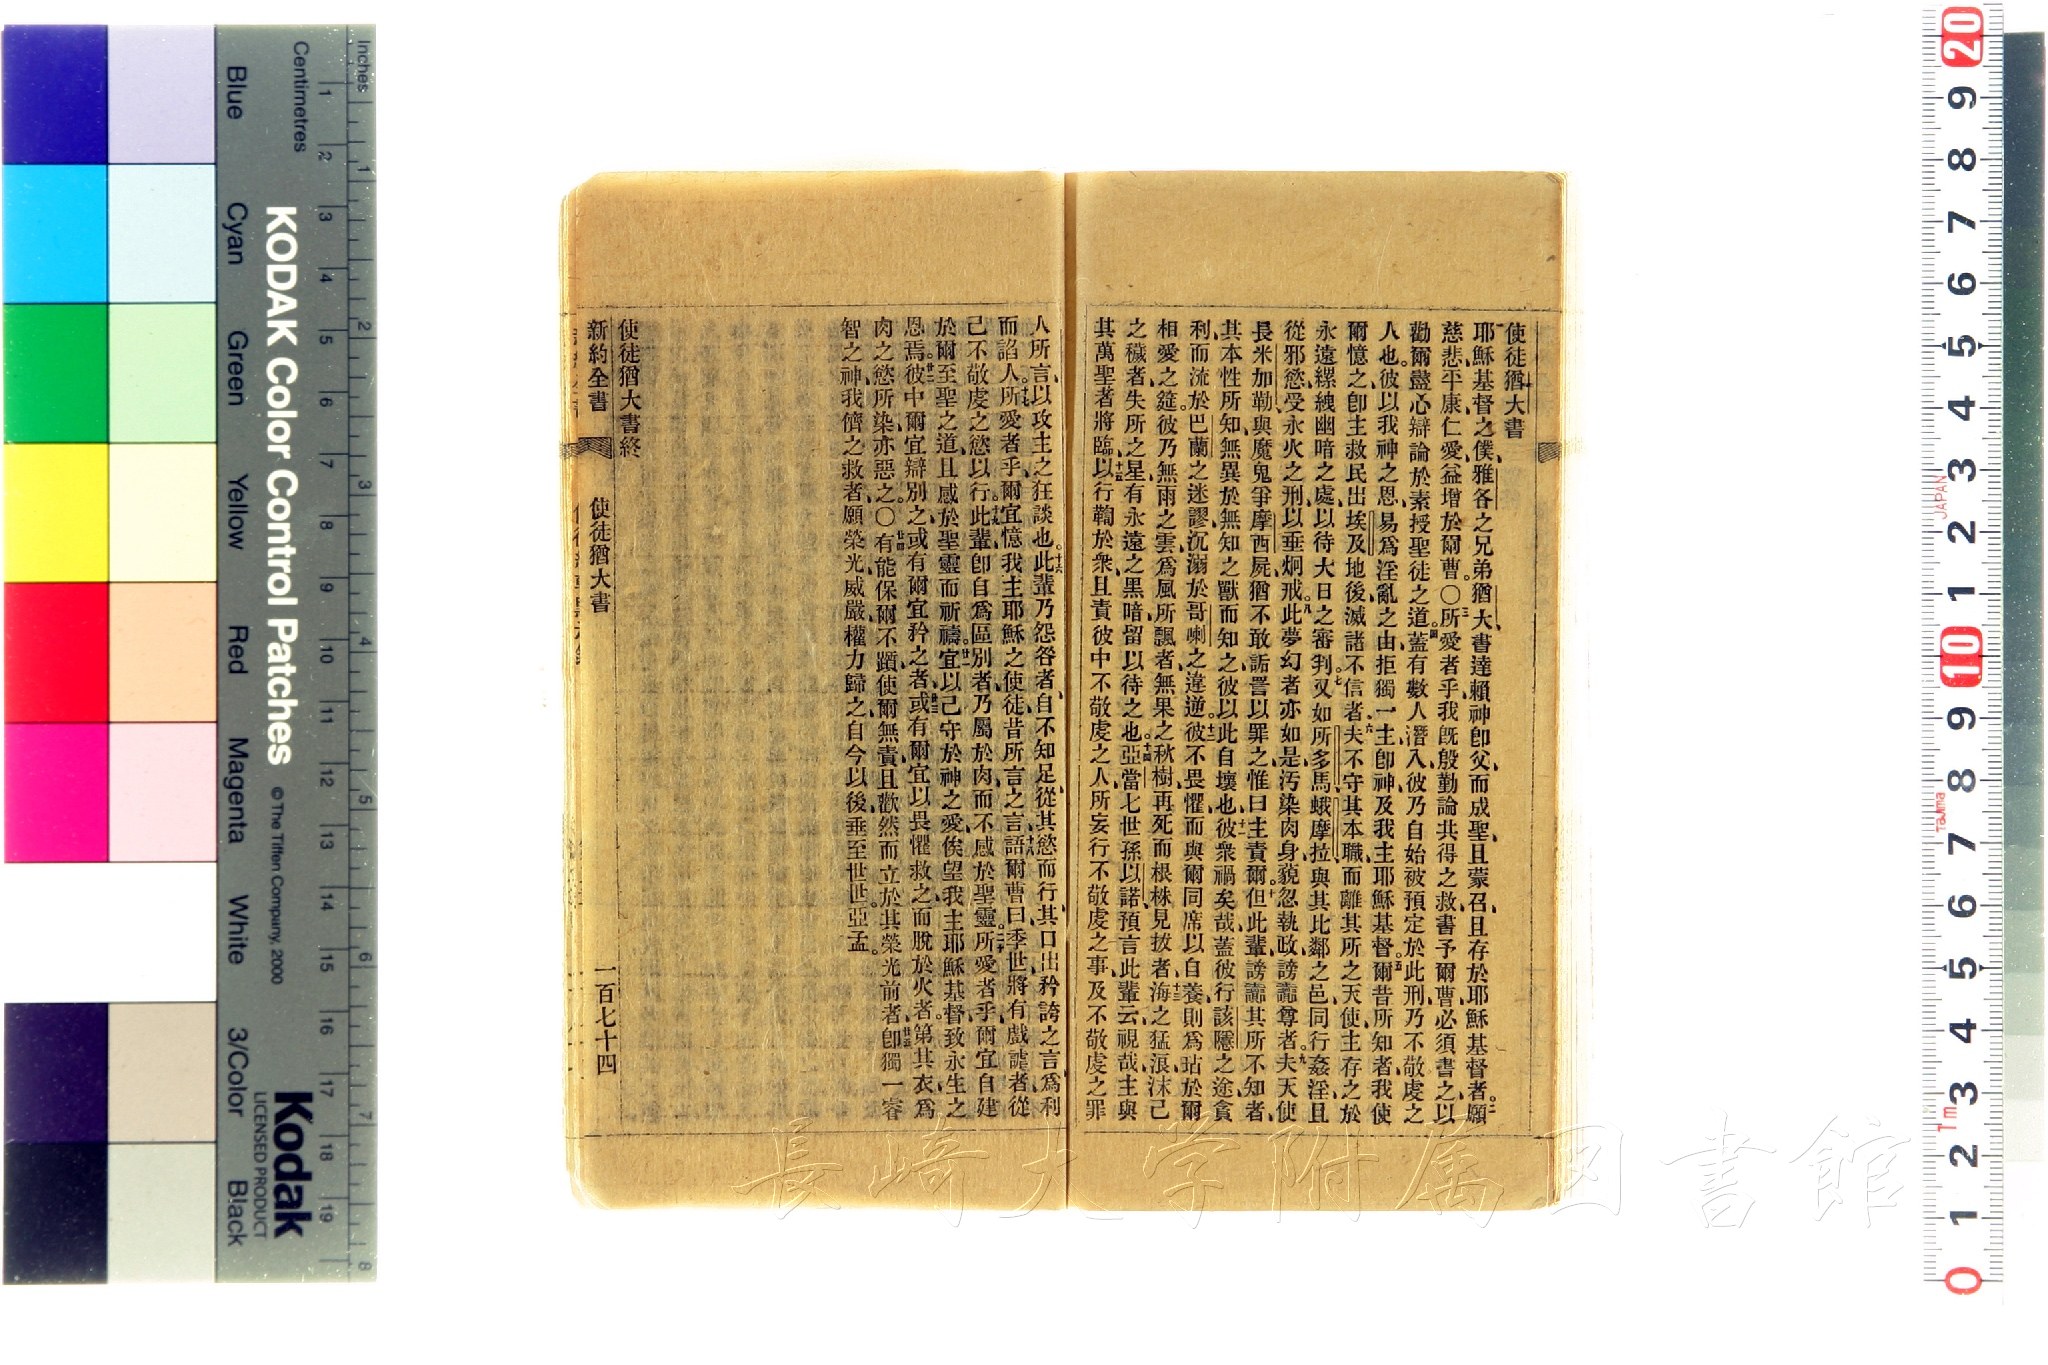 使徒猶大書
耶穌基督之僕雅各之兄弟猶大書達賴神卽父而成聖且蒙召且存於耶穌基督者願
慈悲平康仁愛益增於爾曹〇所愛者乎我旣殷勤論共得之救書予爾曹必須書之以
勸爾盡心辯論於素授聖徒之道蓋有數人潛入彼乃自始被預定於此刑乃不敬虔之
人也彼以我神之恩易爲淫亂之由拒獨一主卽神及我主耶穌基督爾昔所知者我使
爾憶之卽主救民出埃及地後滅諸不信者夫不守其本職而離其所之天使主存之於
永遠縲絏幽暗之處以待大日之審判又如所多馬蛾摩拉與其比鄰之邑同行姦淫且
從邪慾受永火之刑以垂炯戒此夢幻者亦如是汚染肉身藐忽執政謗讟尊者夫天使
長米加勒與魔鬼爭摩西屍猶不敢詬詈以罪之惟曰主責爾但此輩謗讟其所不知者
其本性所知無異於無知之獸而知之彼以此自壞也彼衆禍矣哉蓋彼行該隱之途貪
利而流於巴蘭之迷謬沉溺於哥喇之違逆彼不畏懼而與爾同席以自養則爲玷於爾
相愛之筵彼乃無雨之雲爲風所飄者無果之秋樹再死而根株見拔者海之猛浪沫己
之穢者失所之星有永遠之黑暗留以待之也亞當七世孫以諾預言此輩云視哉主與
其萬聖者將臨以行鞫於衆且責彼中不敬虔之人所妄行不敬虔之事及不敬虔之罪
人所言以攻主之狂談也此輩乃怨咎者自不知足從其慾而行其口出矜誇之言爲利
而諂人所愛者乎爾宜憶我主耶穌之使徒昔所言之言語爾曹曰季世將有戲謔者從
己不敬虔之慾以行此輩卽自爲區別者乃屬於肉而不感於聖靈所愛者乎爾宜自建
於爾至聖之道且感於聖靈而祈禱宜以己守於神之愛俟望我主耶穌基督致永生之
恩焉彼中爾宜辯別之或有爾宜矜之者或有爾宜以畏懼救之而脫於火者第其衣爲
肉之慾所染亦惡之〇有能保爾不躓使爾無責且歡然而立於其榮光前者卽獨一睿
智之神我儕之救者願榮光威嚴權力歸之自今以後垂至世世亞孟
使徒猶大書終
新約全書 使徒猶大書 一百七十四
長崎大学附属図書館
Inches
Centimetres
Blue Cyan Green Yellow Red Magenta White 3/Color Black
KODAK Color Control Patches © The Tiffen Company, 2000
Kodak
LICENSED PRODUCT
1 2 3 4 5 6 7 8 9 10 11 12 13 14 15 16 17 18 19
1 2 3 4 5 6 7 8
20 9 8 7 6 5 4 3 2 1 10 9 8 7 6 5 4 3 2 1 0
JAPAN
Tajima